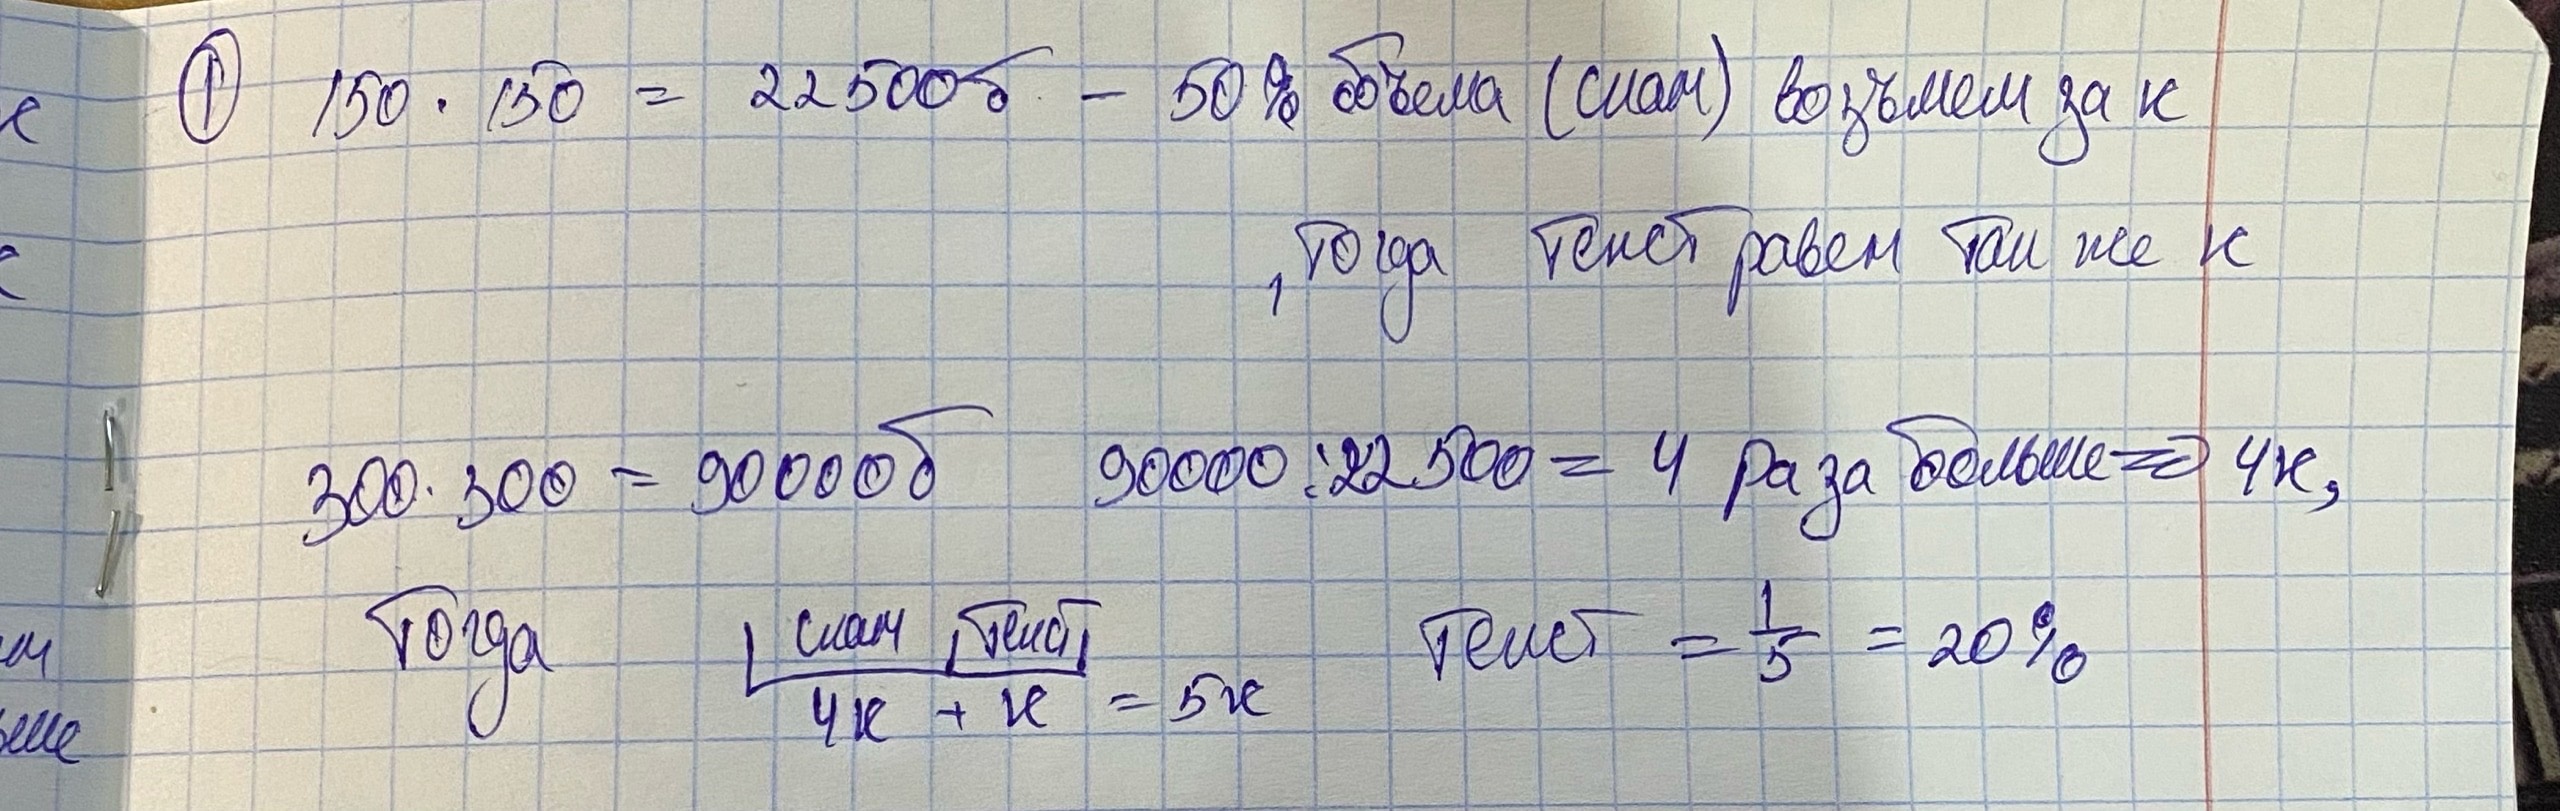 ① 150 · 150 = 22500б - 50% объема (скан) возьмем за к
, тогда текст равен так же к
300 · 300 = 90000б 90000 : 22500 = 4 раза больше => 4к,
Тогда скан текст Текст = 1/5 = 20%
4к + к = 5к